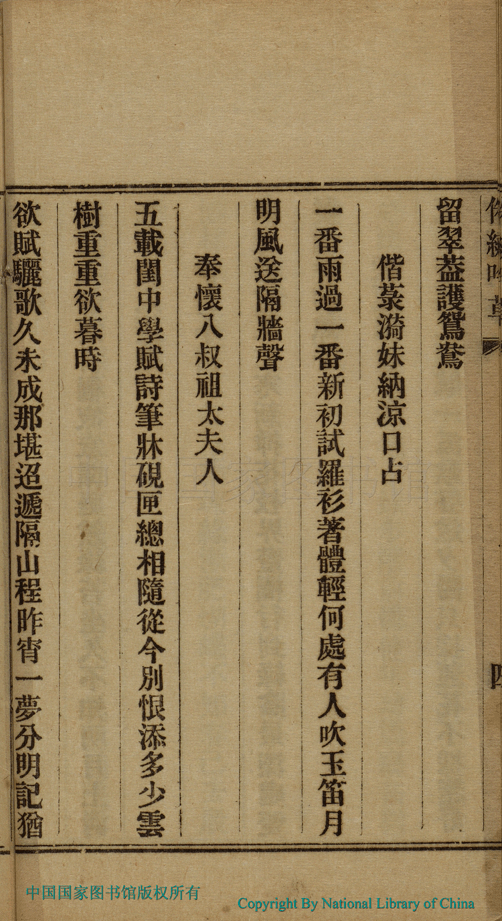 吟草
四
留翠葢護鴛鴦
偕菉漪妹納涼口占
一番雨過一番新初試羅衫著體輕何處有人吹玉笛月
明風送隔牆聲
奉懷八叔祖太夫人
五載閨中學賦詩筆牀硯匣總相隨從今別恨添多少雲
樹重重欲暮時
欲賦驪歌久未成那堪迢遞隔山程昨宵一夢分明記猶
中国国家图书馆版权所有
Copyright By National Library of China